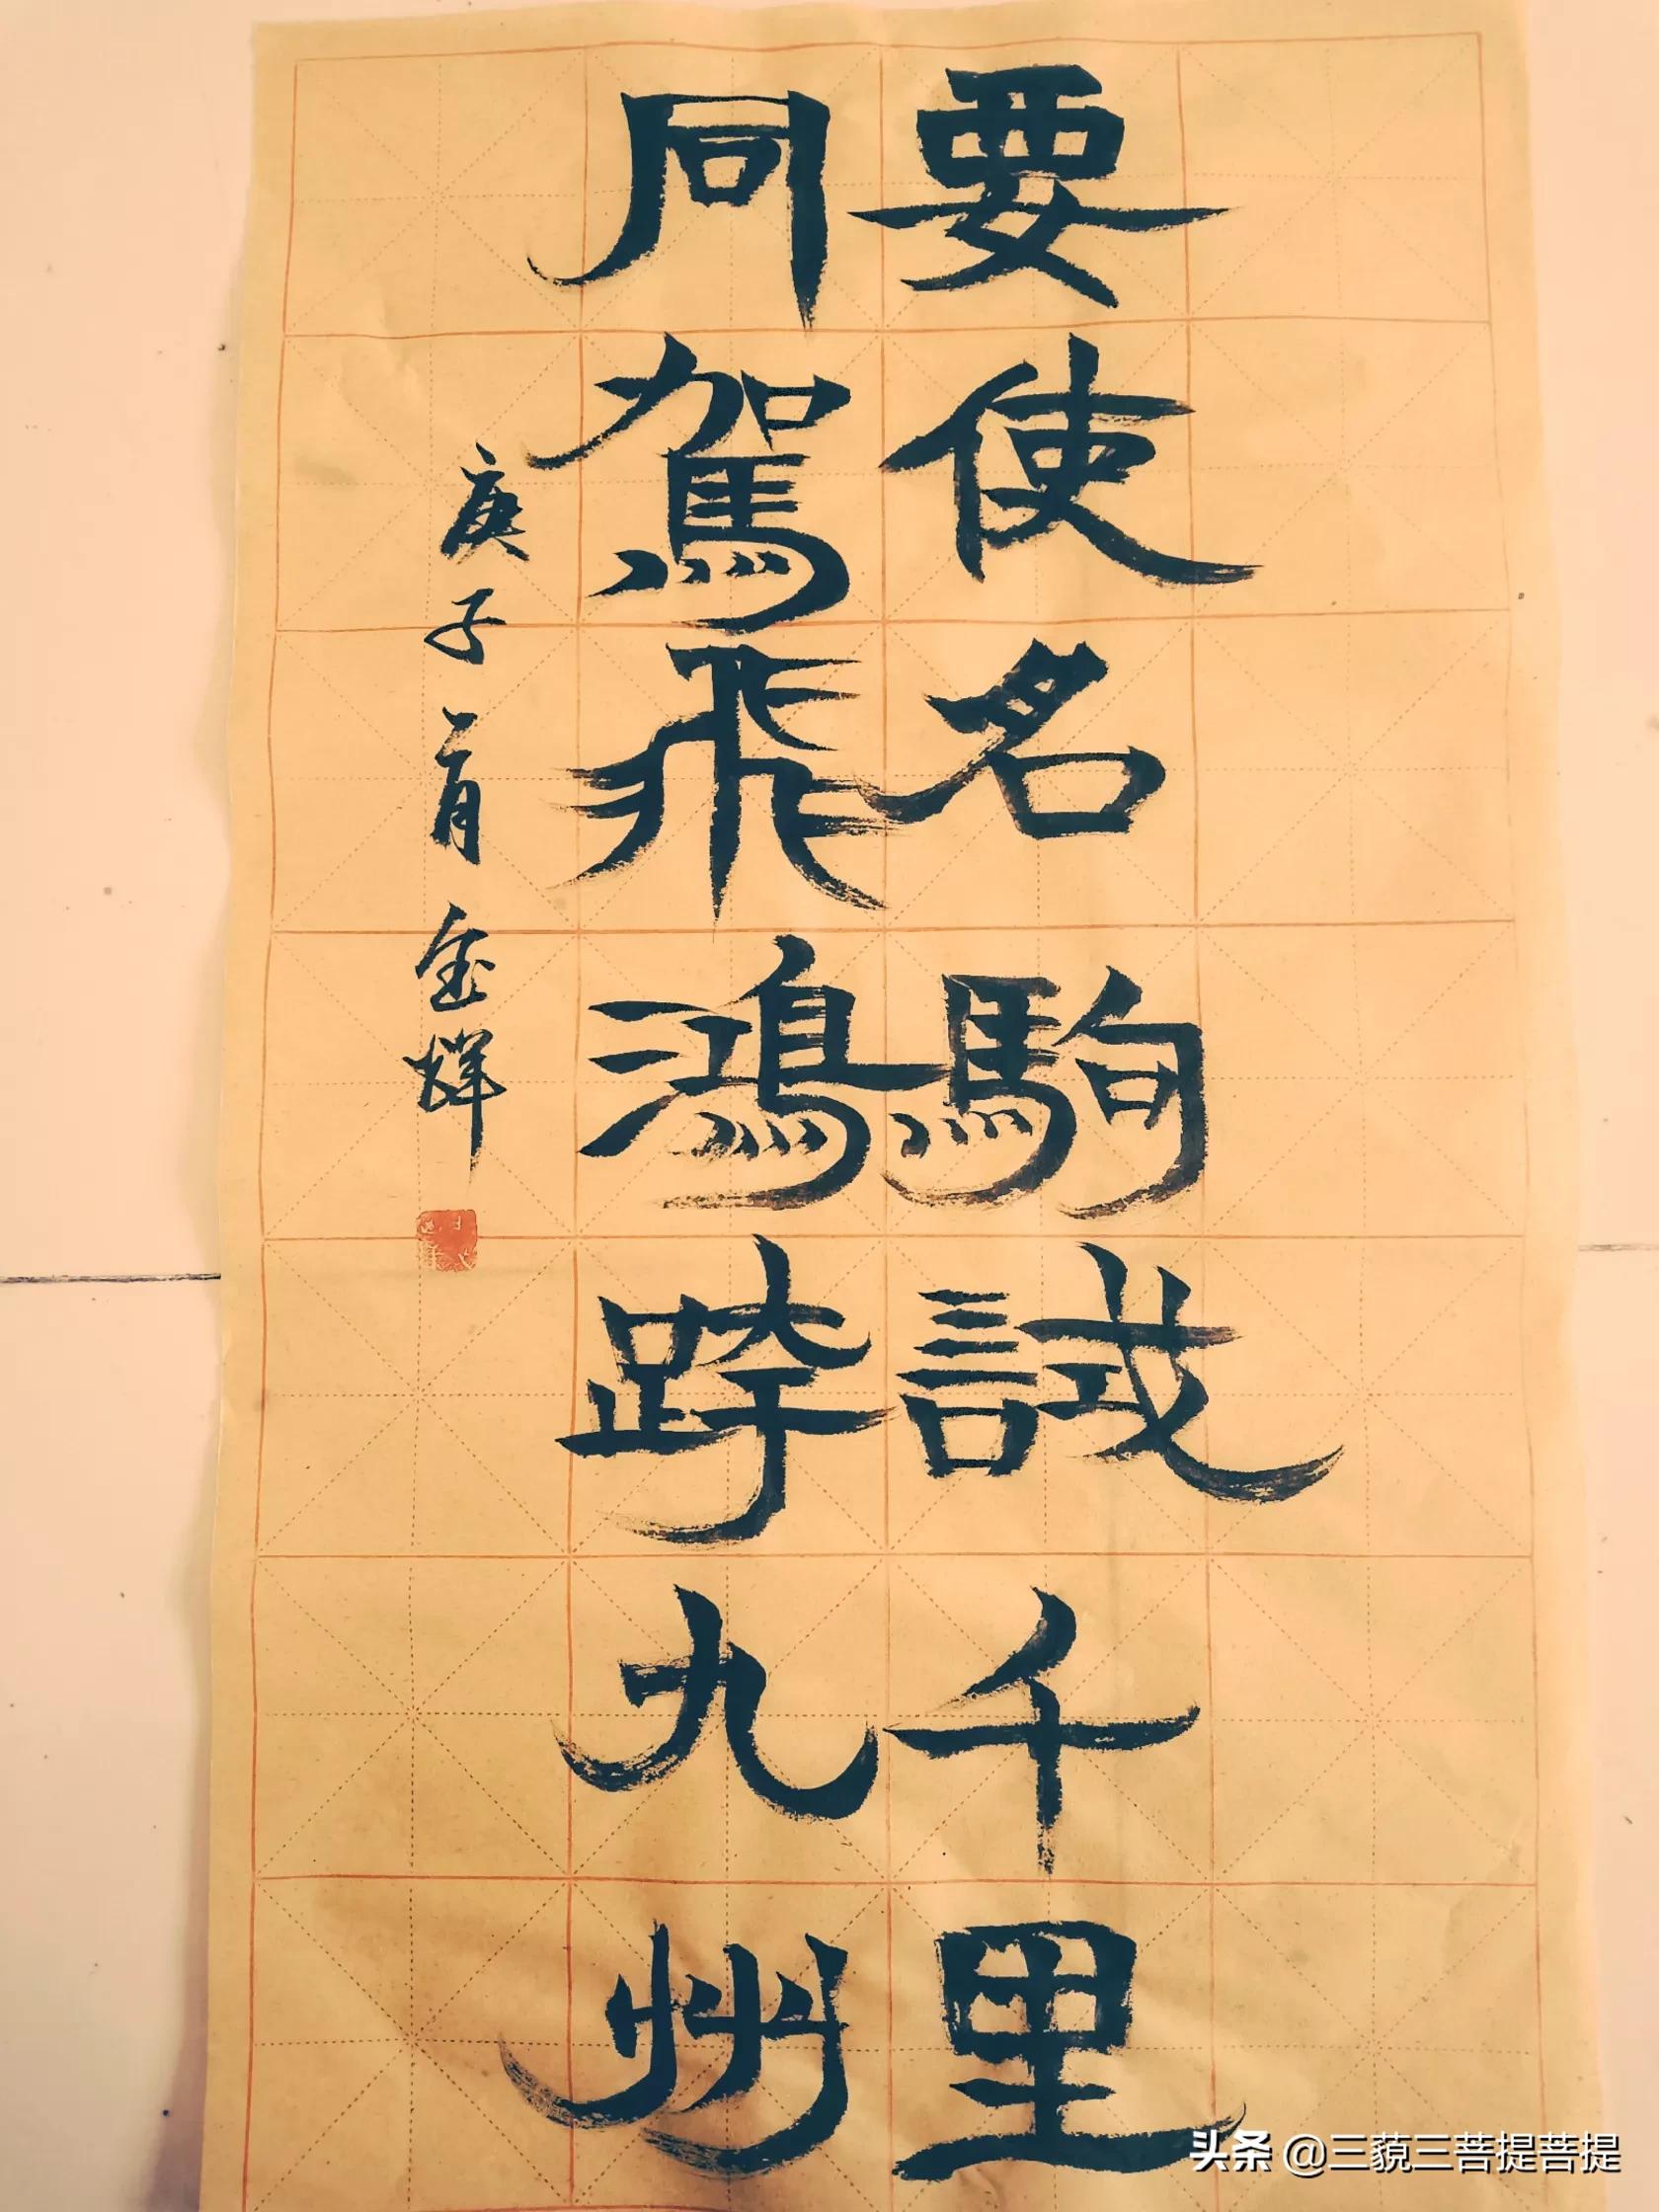 要使名駒試千里
同駕飛鴻跨九州
庚子一月金輝
头条 @三藐三菩提菩提